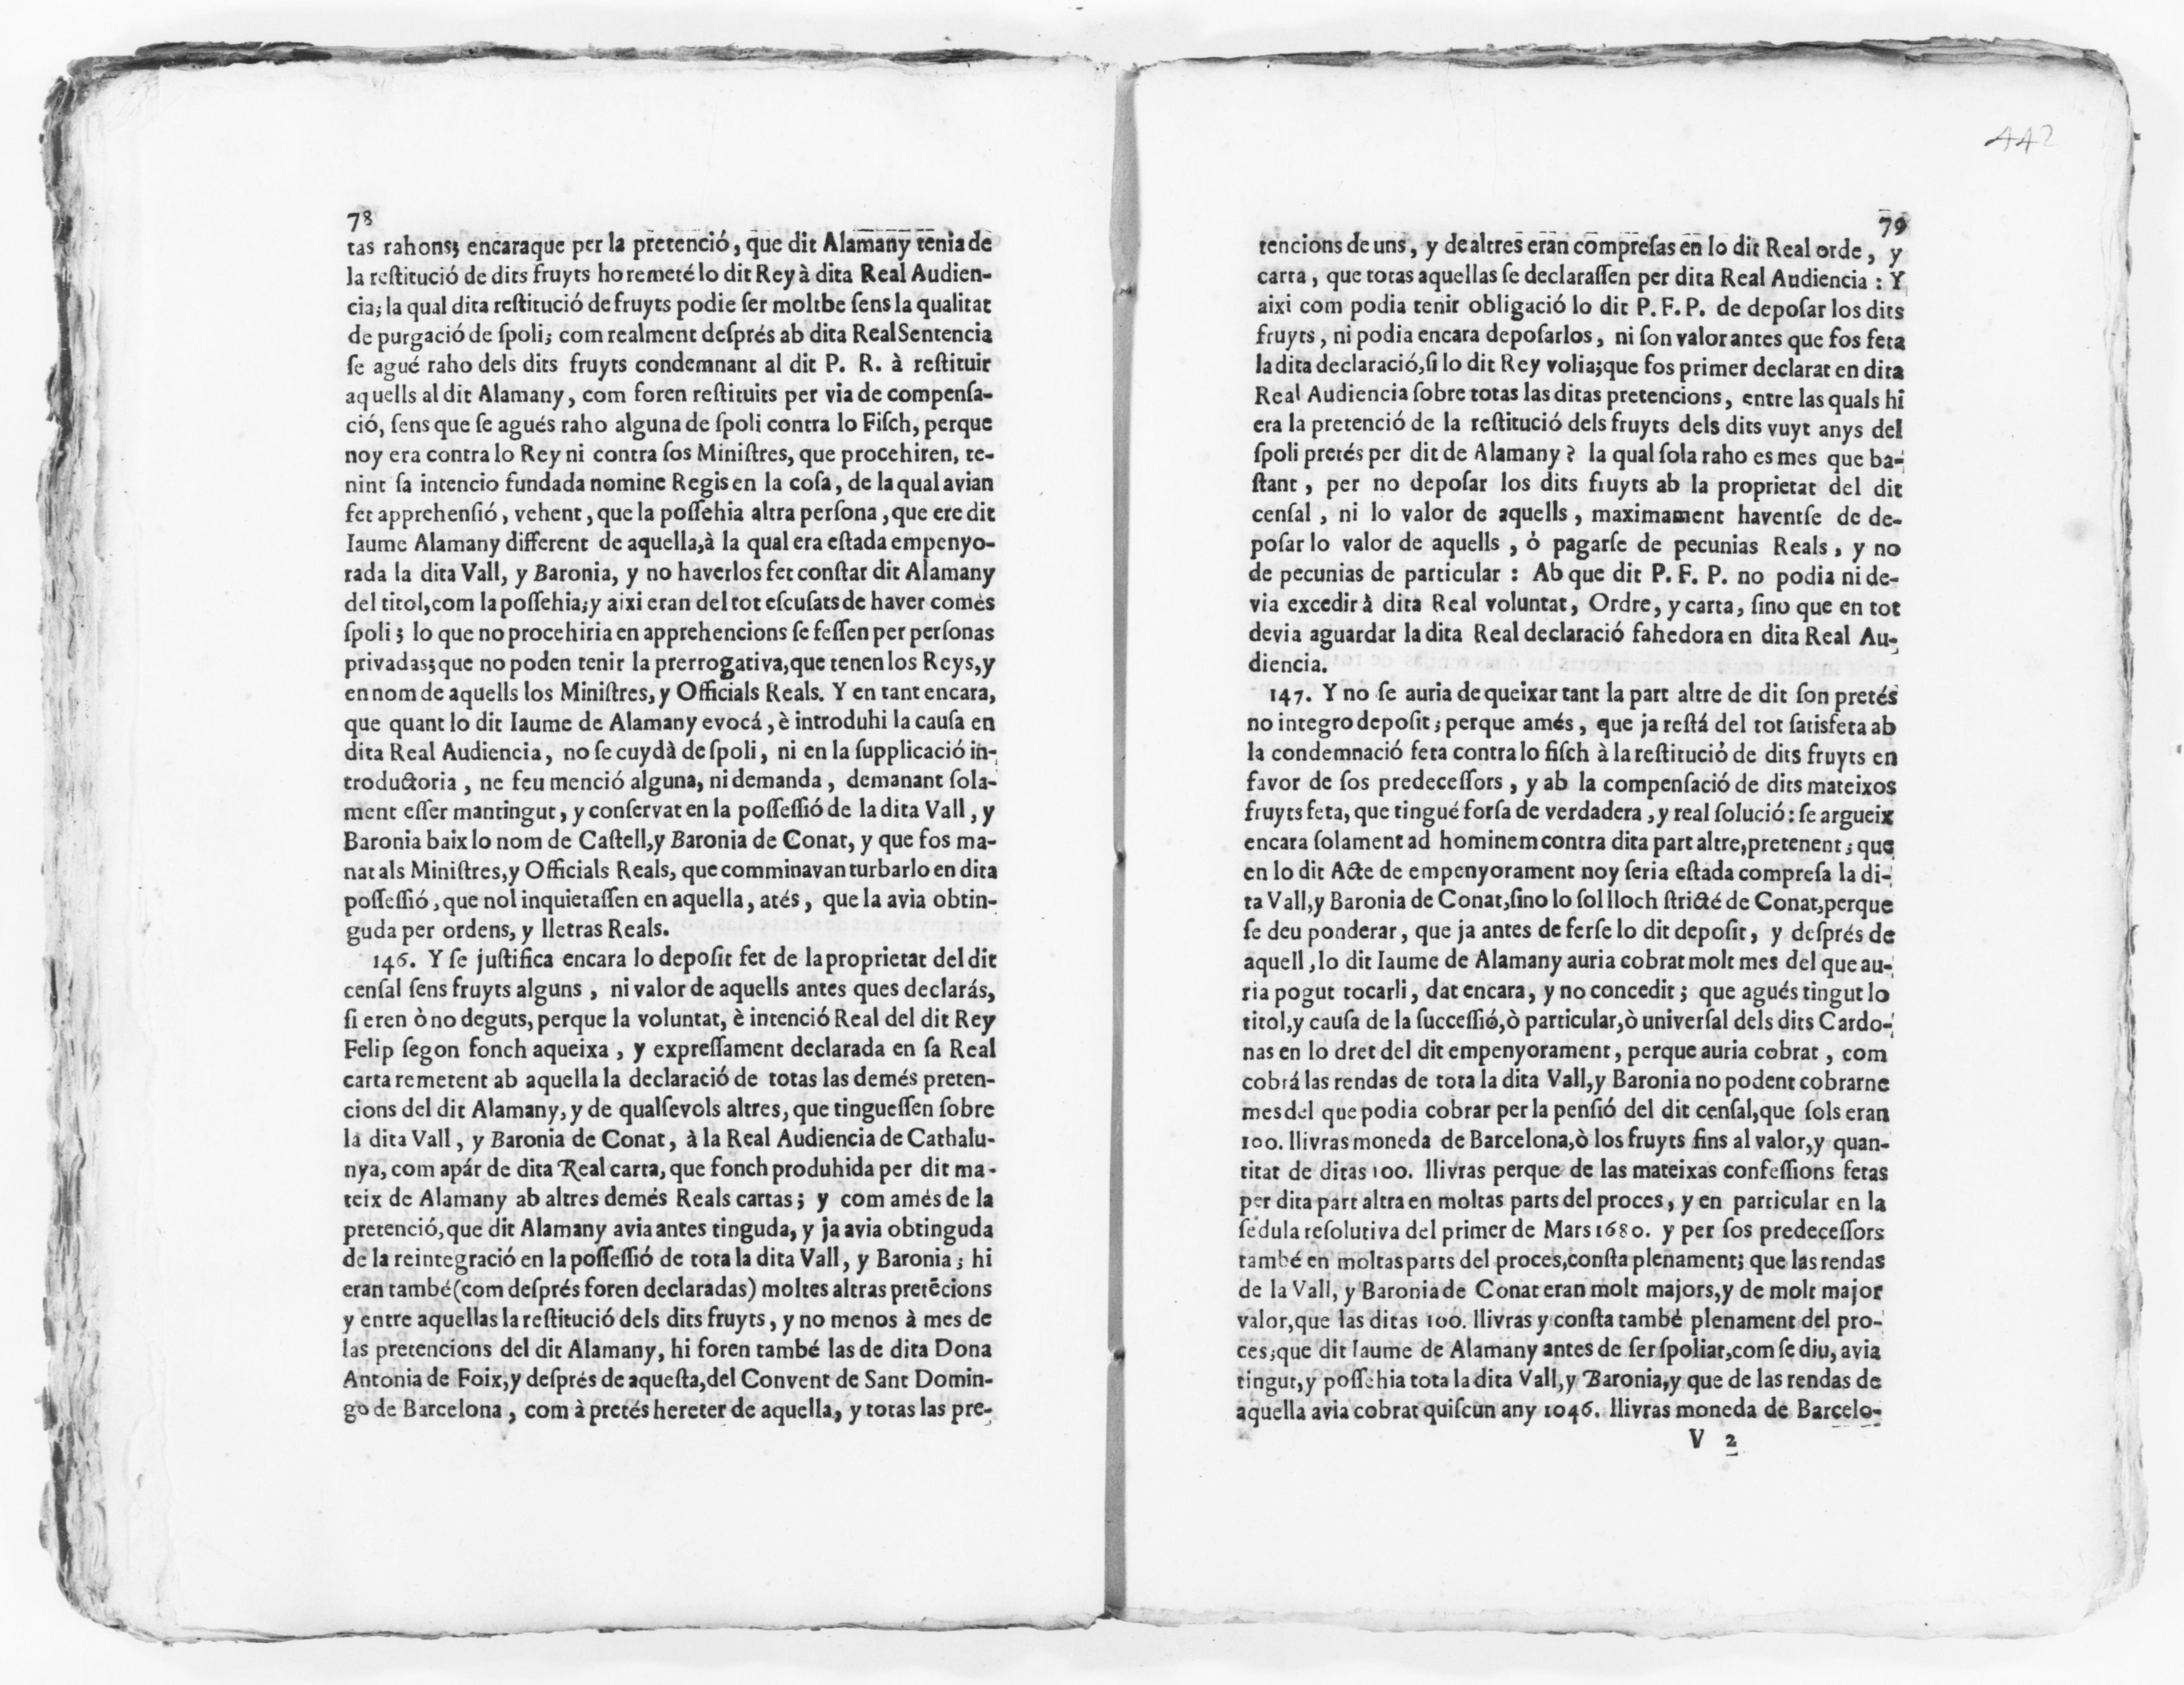 78
tas rahons; encaraque per la pretenció, que dit Alamany tenia de
la reſtitució de dits fruyts ho remeté lo dit Rey à dita Real Audien-
cia; la qual dita reſtitució de fruyts podie ſer moltbe ſens la qualitat
de purgació de ſpoli; com realment deſprés ab dita Real Sentencia
ſe agué raho dels dits fruyts condemnant al dit P. R. à reſtituir
aquells al dit Alamany, com foren reſtituits per via de compenſa-
ció, ſens que ſe agués raho alguna de ſpoli contra lo Fiſch, perque
noy era contra lo Rey ni contra ſos Miniſtres, que procehiren, te-
nint ſa intencio fundada nomine Regis en la coſa, de la qual avian
fet apprehenſió, vehent, que la poſſehia altra perſona, que ere dit
Iaume Alamany different de aquella, à la qual era eſtada empenyo-
rada la dita Vall, y Baronia, y no haverlos fet conſtar dit Alamany
del titol, com la poſſehia; y aixi eran del tot eſcuſats de haver comés
ſpoli; lo que no procehiria en apprehencions ſe feſſen per perſonas
privadas; que no poden tenir la prerrogativa, que tenen los Reys, y
en nom de aquells los Miniſtres, y Officials Reals. Y en tant encara,
que quant lo dit Iaume de Alamany evocá, è introduhi la cauſa en
dita Real Audiencia, no ſe cuydà de ſpoli, ni en la ſupplicació in-
troductoria, ne feu menció alguna, ni demanda, demanant ſola-
ment eſſer mantingut, y conſervat en la poſſeſſió de la dita Vall, y
Baronia baix lo nom de Caſtell, y Baronia de Conat, y que fos ma-
nat als Miniſtres, y Officials Reals, que comminavan turbarlo en dita
poſſeſſió, que nol inquietaſſen en aquella, atés, que la avia obtin-
guda per ordens, y lletras Reals.
146. Y ſe juſtifica encara lo depoſit fet de la proprietat del dit
cenſal ſens fruyts alguns, ni valor de aquells antes ques declarás,
ſi eren ò no deguts, perque la voluntat, è intenció Real del dit Rey
Felip ſegon fonch aqueixa, y expreſſament declarada en ſa Real
carta remetent ab aquella la declaració de totas las demés preten-
cions del dit Alamany, y de qualſevols altres, que tingueſſen ſobre
la dita Vall, y Baronia de Conat, à la Real Audiencia de Cathalu-
nya, com apár de dita Real carta, que fonch produhida per dit ma-
teix de Alamany ab altres demés Reals cartas; y com amés de la
pretenció, que dit Alamany avia antes tinguda, y ja avia obtinguda
de la reintegració en la poſſeſſió de tota la dita Vall, y Baronia; hi
eran també (com deſprés foren declaradas) moltes altras pretēcions
y entre aquellas la reſtitució dels dits fruyts, y no menos à mes de
las pretencions del dit Alamany, hi foren també las de dita Dona
Antonia de Foix, y deſprés de aqueſta, del Convent de Sant Domin-
go de Barcelona, com à pretés hereter de aquella, y totas las pre-
442
79
tencions de uns, y de altres eran compreſas en lo dit Real orde, y
carta, que totas aquellas ſe declaraſſen per dita Real Audiencia: Y
aixi com podia tenir obligació lo dit P. F. P. de depoſar los dits
fruyts, ni podia encara depoſarlos, ni ſon valor antes que fos feta
la dita declaració, ſi lo dit Rey volia; que fos primer declarat en dita
Real Audiencia ſobre totas las ditas pretencions, entre las quals hi
era la pretenció de la reſtitució dels fruyts dels dits vuyt anys del
ſpoli pretés per dit de Alamany? la qual ſola raho es mes que ba-
ſtant, per no depoſar los dits fruyts ab la proprietat del dit
cenſal, ni lo valor de aquells, maximament haventſe de de-
poſar lo valor de aquells, ò pagarſe de pecunias Reals, y no
de pecunias de particular: Ab que dit P. F. P. no podia ni de-
via excedir à dita Real voluntat, Ordre, y carta, ſino que en tot
devia aguardar la dita Real declaració fahedora en dita Real Au-
diencia.
147. Y no ſe auria de queixar tant la part altre de dit ſon pretés
no integro depoſit; perque amés, que ja reſtá del tot ſatisfeta ab
la condemnació feta contra lo fiſch à la reſtitució de dits fruyts en
favor de ſos predeceſſors, y ab la compenſació de dits mateixos
fruyts feta, que tingué forſa de verdadera, y real ſolució: ſe argueix
encara ſolament ad hominem contra dita part altre, pretenent; que
en lo dit Acte de empenyorament noy ſeria eſtada compreſa la di-
ta Vall, y Baronia de Conat, ſino lo ſol lloch ſtricté de Conat, perque
ſe deu ponderar, que ja antes de ferſe lo dit depoſit, y deſprés de
aquell, lo dit Iaume de Alamany auria cobrat molt mes del que au-
ria pogut tocarli, dat encara, y no concedit; que agués tingut lo
titol, y cauſa de la ſucceſſió, ò particular, ò univerſal dels dits Cardo-
nas en lo dret del dit empenyorament, perque auria cobrat, com
cobrá las rendas de tota la dita Vall, y Baronia no podent cobrarne
mes del que podia cobrar per la penſió del dit cenſal, que ſols eran
100. llivras moneda de Barcelona, ò los fruyts fins al valor, y quan-
titat de ditas 100. llivras perque de las mateixas confeſſions fetas
per dita part altra en moltas parts del proces, y en particular en la
ſedula reſolutiva del primer de Mars 1680. y per ſos predeceſſors
també en moltas parts del proces, conſta plenament; que las rendas
de la Vall, y Baronia de Conat eran molt majors, y de molt major
valor, que las ditas 100. llivras y conſta també plenament del pro-
ces; que dit Iaume de Alamany antes de ſer ſpoliat, com ſe diu, avia
tingut, y poſſehia tota la dita Vall, y Baronia, y que de las rendas de
aquella avia cobrat quiſcun any 1046. llivras moneda de Barcelo-
V 2